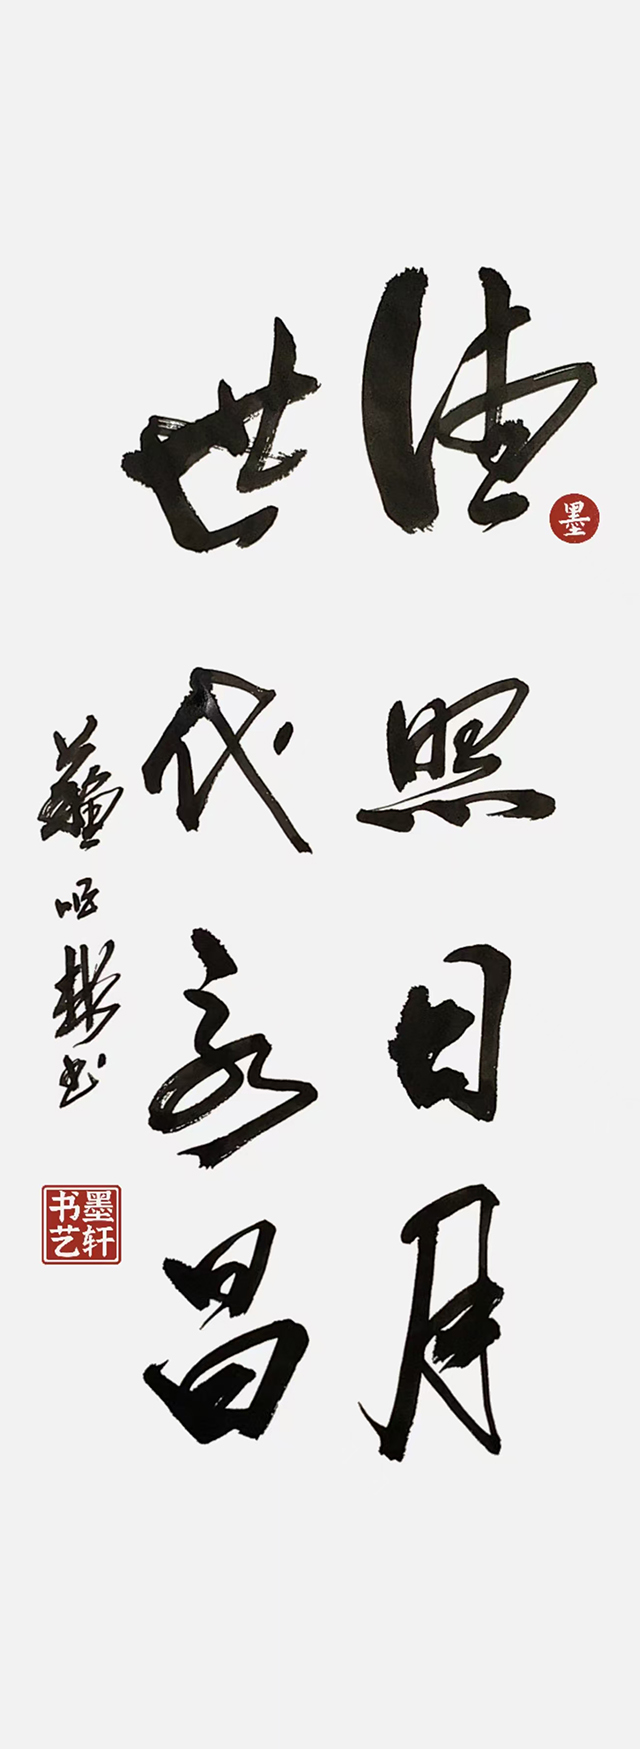 德照日月
墨
世代永昌
书
墨轩
书艺